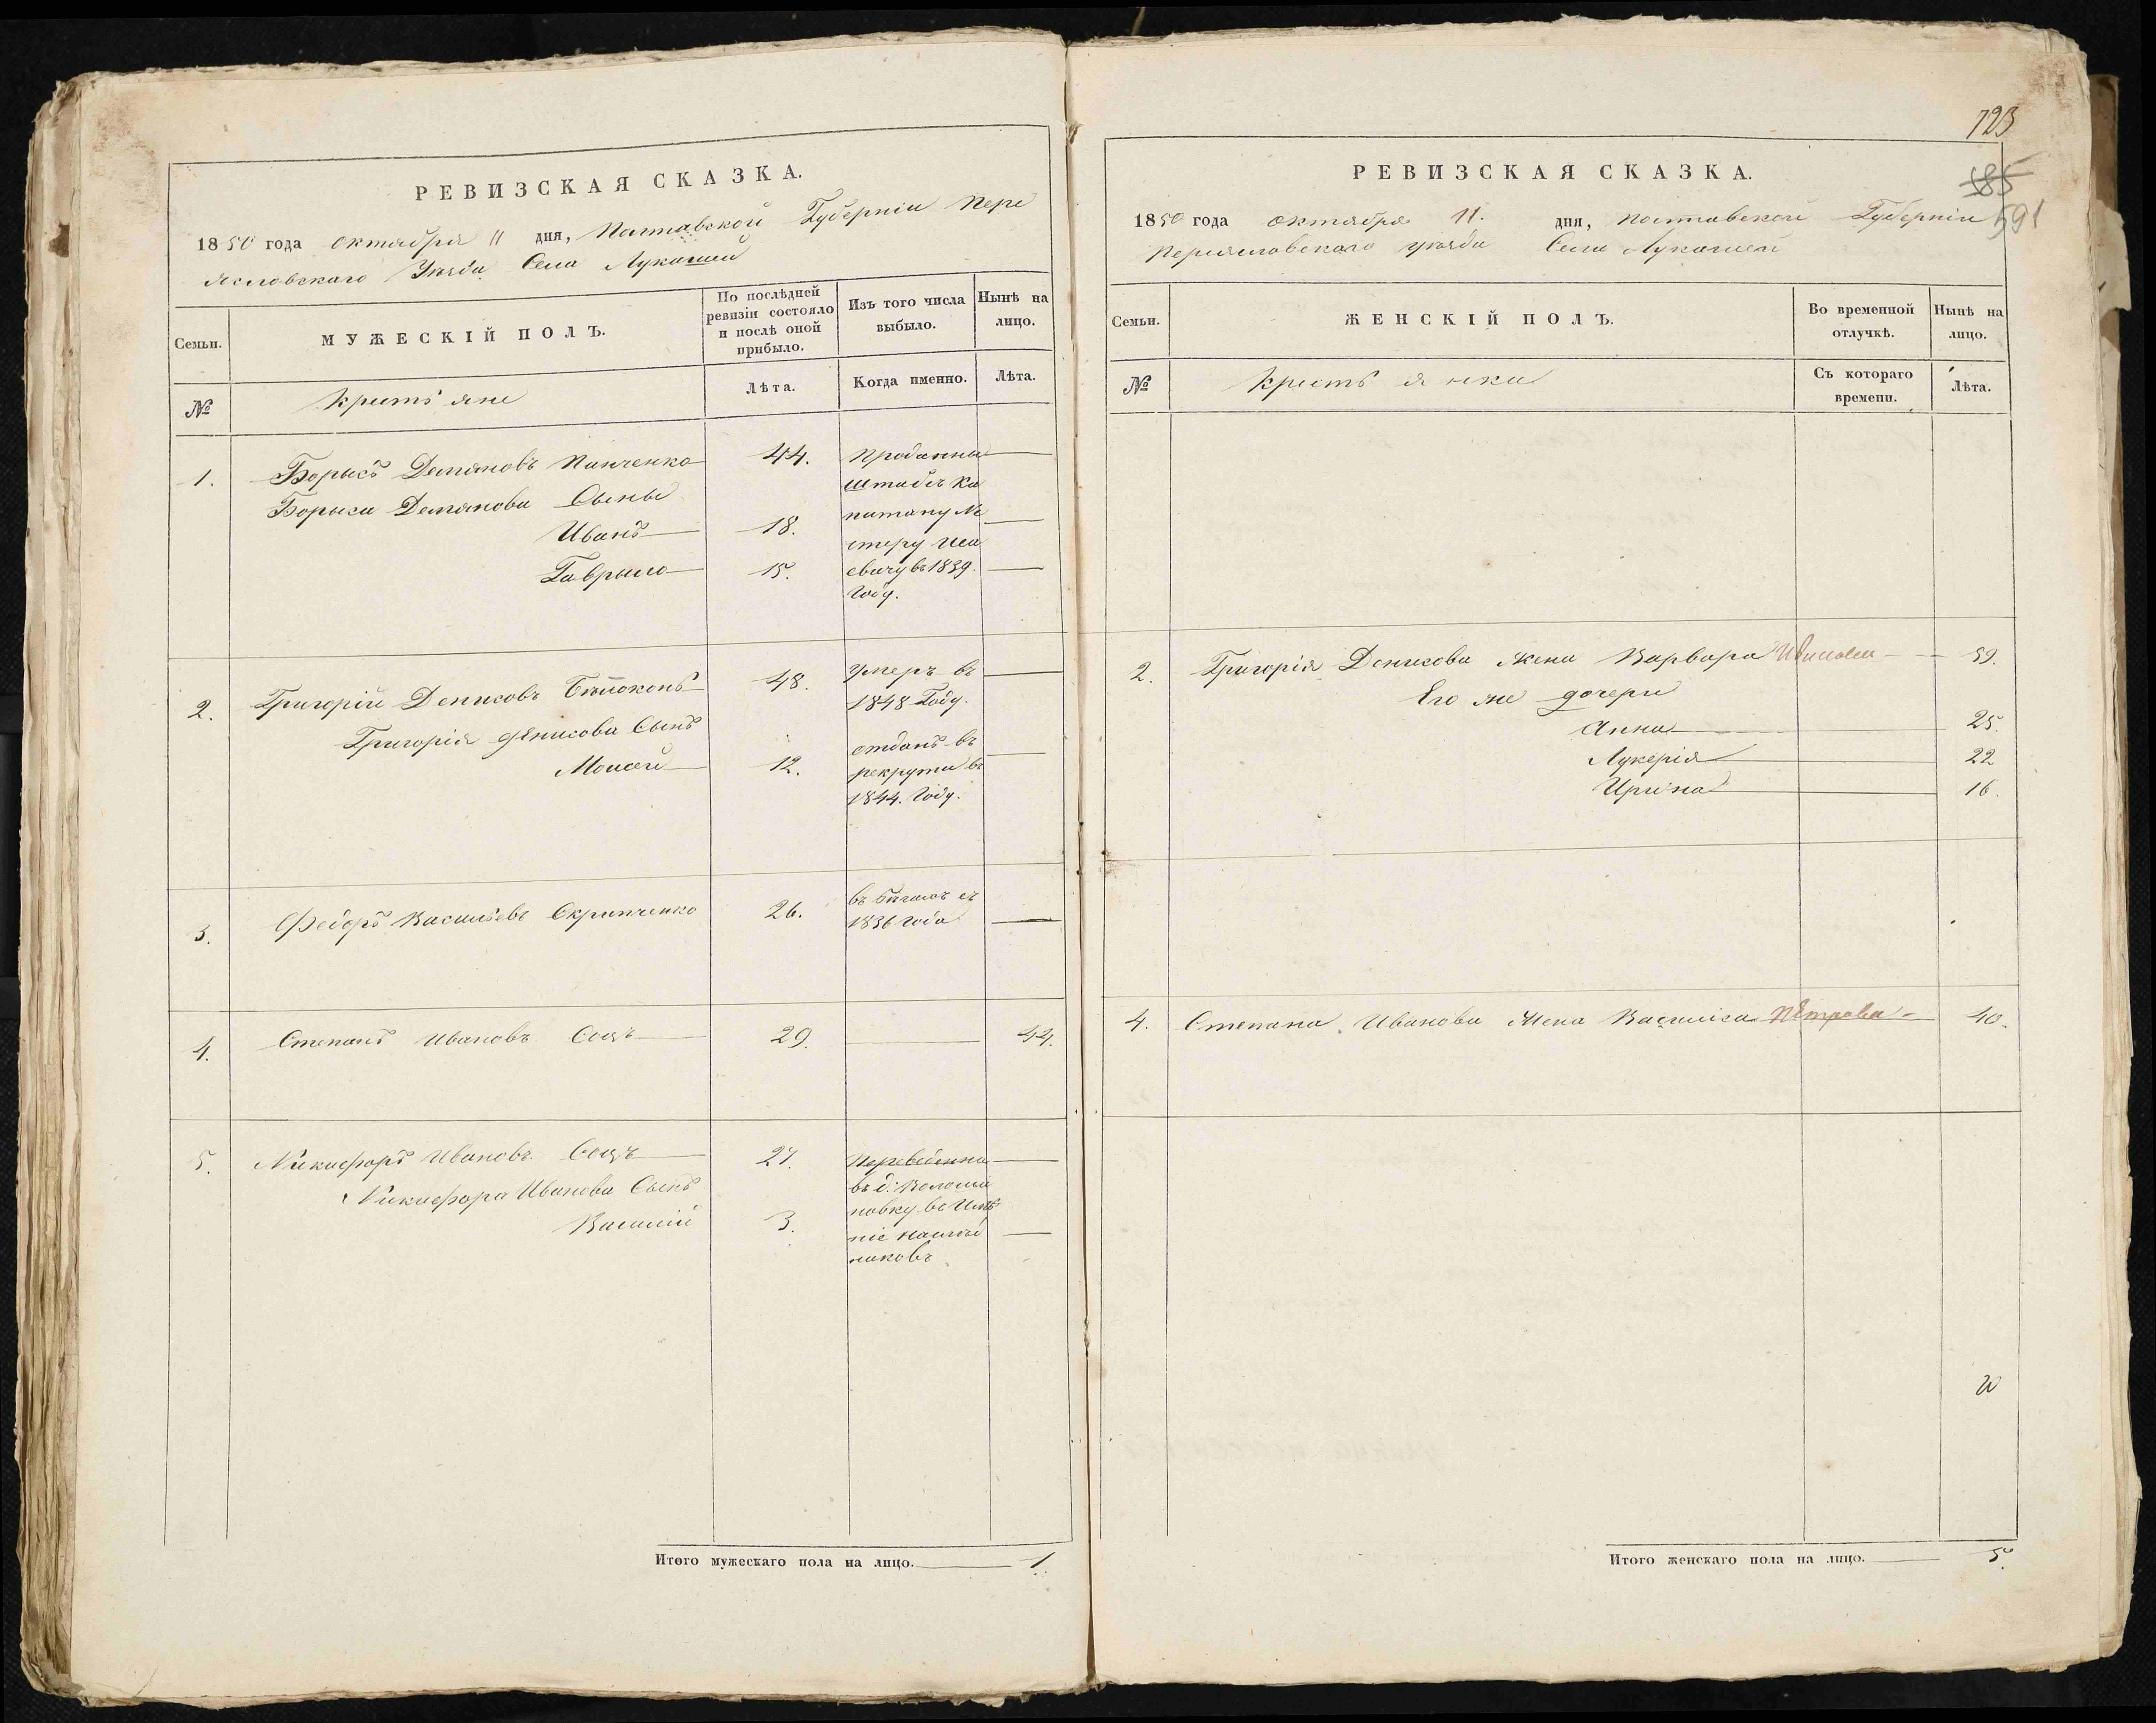 РЕВИЗСКАЯ СКАЗКА.
1850 года октября 11 дня, Полтавской Губерніи Пере
яславского Уѣзда Села Лукашей
Семьи.
МУЖЕСКІЙ ПОЛЪ.
По послѣдней ревизіи состояло и послѣ оной прибыло.
Изъ того числа выбыло.
Нынѣ на лицо.
№
Крестьяне
Лѣта.
Когда именно.
Лѣта.
1. Борысъ Демяновъ Панченко 44. Проданны
Борыса Демянова Сыны штабсъ Ка
Иванъ 18. питану Не
стеру Иса
Гаврыло 15. евичу въ 1839.
Году.
2. Григорій Денисовъ Бѣлоконь 48. Умеръ въ
1848 Году.
Григорія Денисова Сынъ отданъ въ
Моисей 12. рекруты въ
1844. Году.
3. Федоръ Васильевъ Скрипченко 26. въ бѣгахъ съ
1836 Года
4. Степанъ Ивановъ Соцъ 29. 44.
5. Никифоръ Ивановъ Соцъ 27. Переведенны
Никифора Иванова Сынъ въ д: Волоши
новку въ Имѣ
Василій 3. ніе наслѣд
никовъ
Итого мужескаго пола на лицо. 1.
723
585
591
РЕВИЗСКАЯ СКАЗКА.
1850 года октября 11. дня, Полтавской Губерніи
Переяславскаго уѣзда Села Лукашей
Семьи.
ЖЕНСКІЙ ПОЛЪ.
Во временной отлучкѣ.
Нынѣ на лицо.
№
Крестьянки
Съ котораго времени.
Лѣта.
2. Григорія Денисова жена Варвара 59.
Его же дочери
Анна 25.
Лукерія 22
Ирина 16.
4. Степана Иванова Жена Василиса Петрова 40.
Итого женскаго пола на лицо. 5.